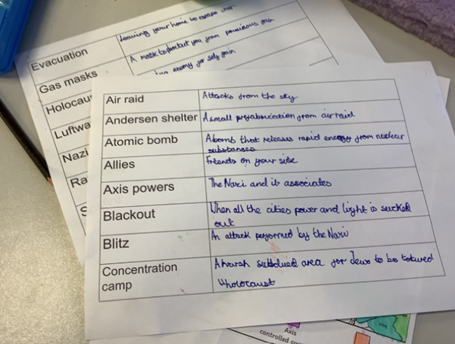 Evacuation Leaving your home to escape
Gas masks A mask to protect you from poisonous
Holocau
Luftwa
Nazi
Ra
S
Air raid Attacks from the sky
Andersen shelter A small from air raid
Atomic bomb A bomb that releases rapid energy from nuclear
substances
Allies Friends on your side
Axis powers The Nazi and its associates
Blackout When all the cities power and light is sucked
out
Blitz An attack performed by the Nazi
Concentration A harsh area for Jews to be
camp
Axis
controlled